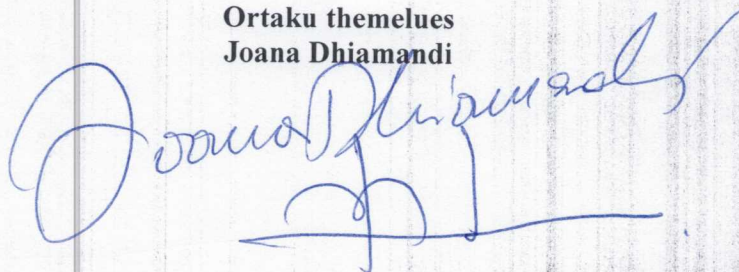 Ortaku themelues
Joana Dhiamandi
Joana Dhiamandi